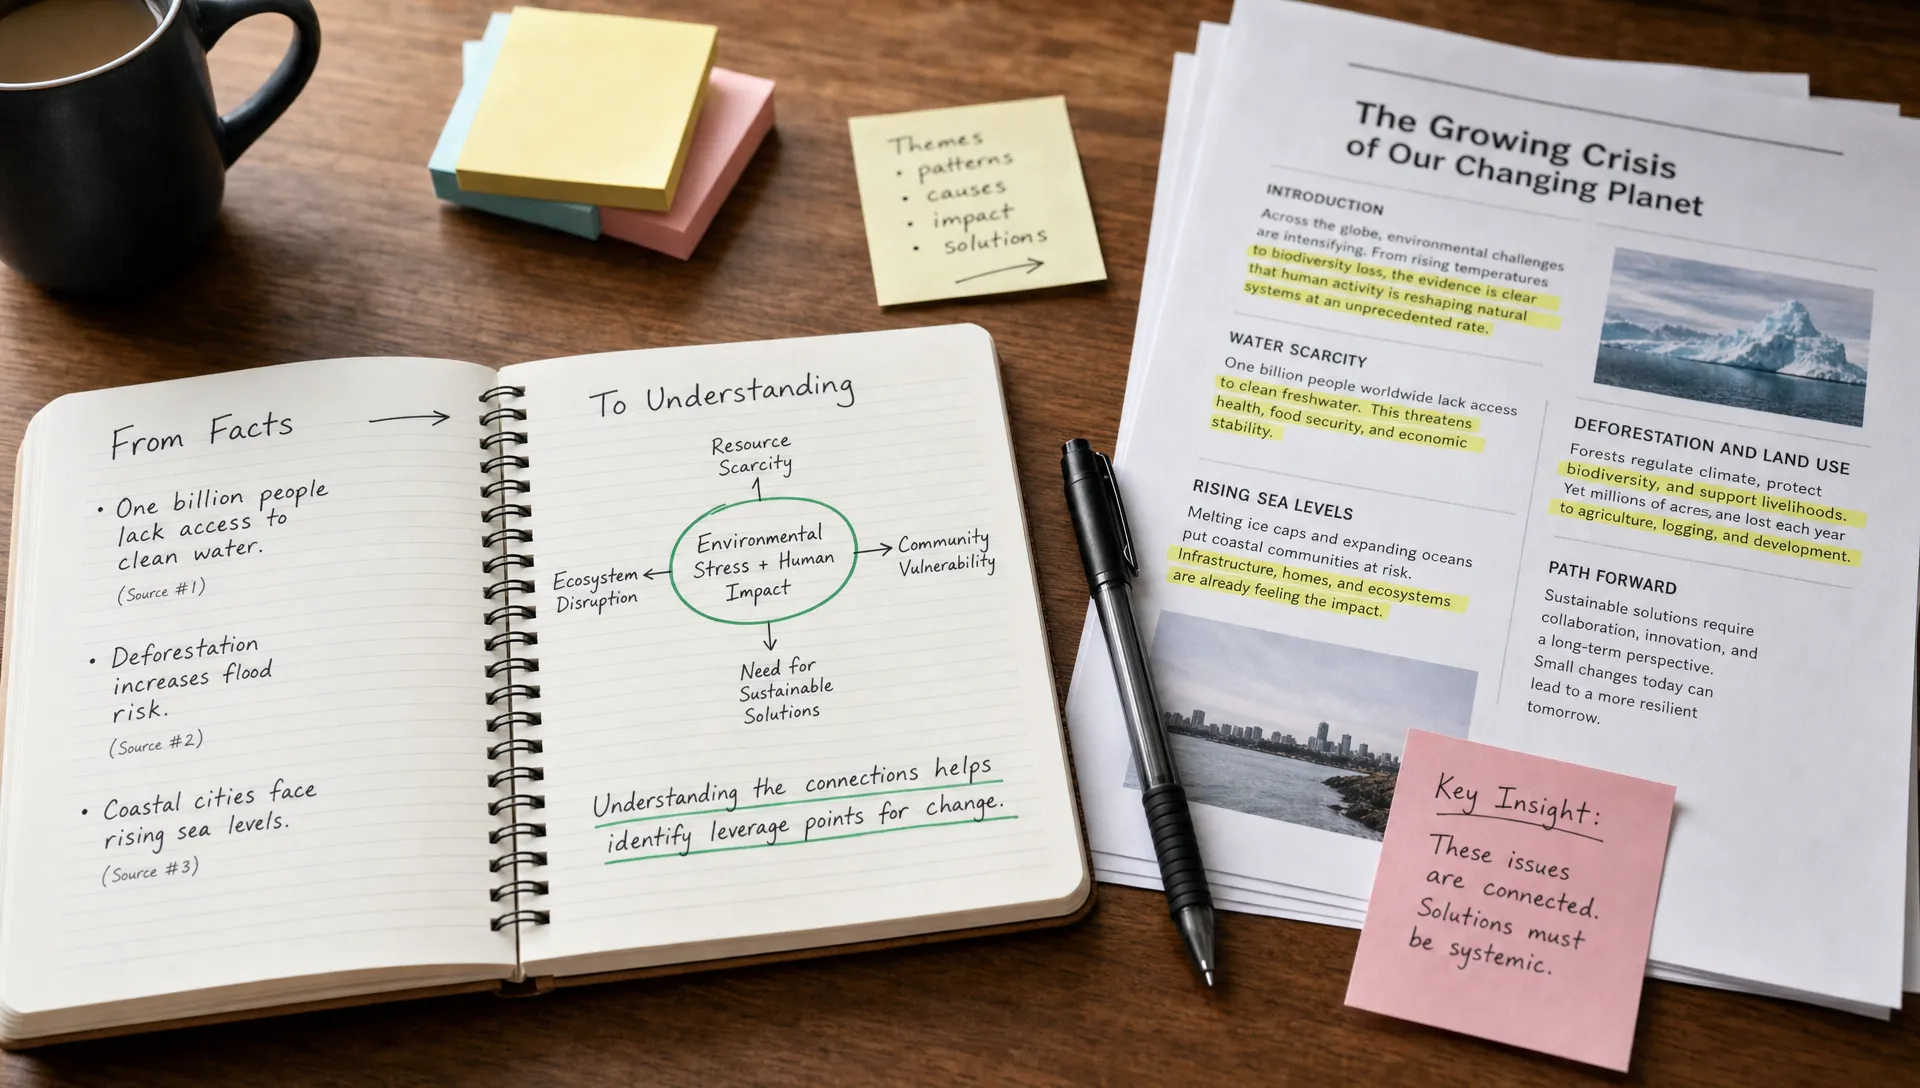 From Facts
• One billion people
lack access to
clean water.
(Source #1)
• Deforestation
increases flood
risk.
(Source #2)
• Coastal cities face
rising sea levels.
(Source #3)
To Understanding
Resource
Scarcity
Environmental
Stress + Human
Impact
Ecosystem
Disruption
Community
Vulnerability
Need for
Sustainable
Solutions
Understanding the connections helps
identify leverage points for change.
Themes
• patterns
• causes
• impact
• solutions
The Growing Crisis
of Our Changing Planet
INTRODUCTION
Across the globe, environmental challenges
are intensifying. From rising temperatures
to biodiversity loss, the evidence is clear
that human activity is reshaping natural
systems at an unprecedented rate.
WATER SCARCITY
One billion people worldwide lack access
to clean freshwater. This threatens
health, food security, and economic
stability.
RISING SEA LEVELS
Melting ice caps and expanding oceans
put coastal communities at risk.
Infrastructure, homes, and ecosystems
are already feeling the impact.
DEFORESTATION AND LAND USE
Forests regulate climate, protect
biodiversity, and support livelihoods.
Yet millions of acres, are lost each year
to agriculture, logging, and development.
PATH FORWARD
Sustainable solutions require
collaboration, innovation, and
a long-term perspective.
Small changes today can
lead to a more resilient
tomorrow.
Key Insight:
These issues
are connected.
Solutions must
be systemic.